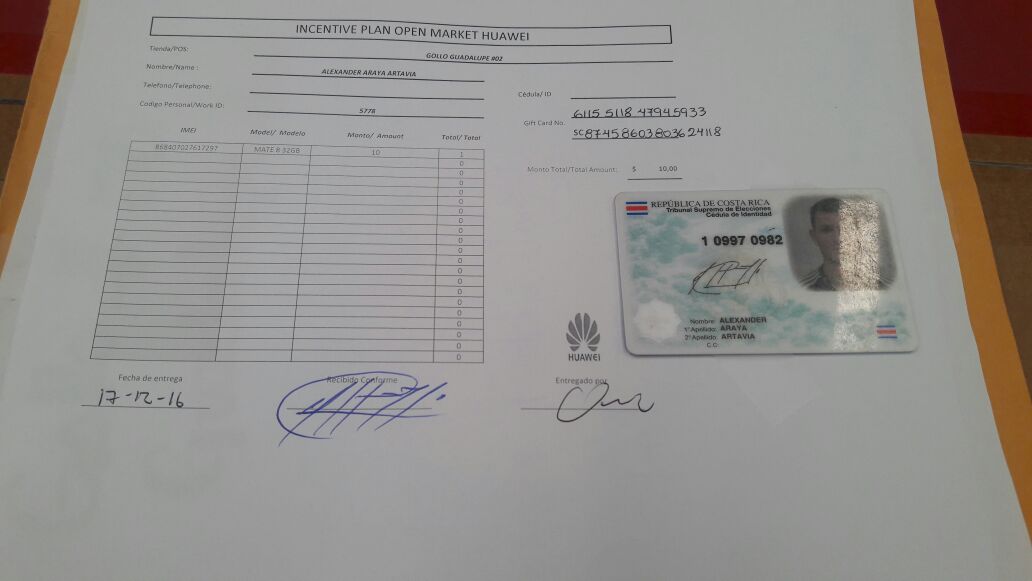 INCENTIVE PLAN OPEN MARKET HUAWEI
Tienda/POS: GOLLO GUADALUPE #02
Nombre/Name : ALEXANDER ARAYA ARTAVIA
Telefono/Telephone:
Codigo Personal/Work ID: 5778
Cédula/ ID
Gift Card No. 6115 5118 47945933
SC87458603803624118
IMEI Model/ Modelo Monto/ Amount Total/ Total
868407027617297 MATE 8 32GB 10 1
0
0
0
0
0
0
0
0
0
0
0
0
0
0
0
0
0
0
0
0
Monto Total/Total Amount: $ 10,00
REPÚBLICA DE COSTA RICA
Tribunal Supremo de Elecciones
Cédula de Identidad
1 0997 0982
Nombre: ALEXANDER
1° Apellido: ARAYA
2° Apellido: ARTAVIA
C.C:
HUAWEI
Fecha de entrega Recibido Conforme Entregado por
17-12-16